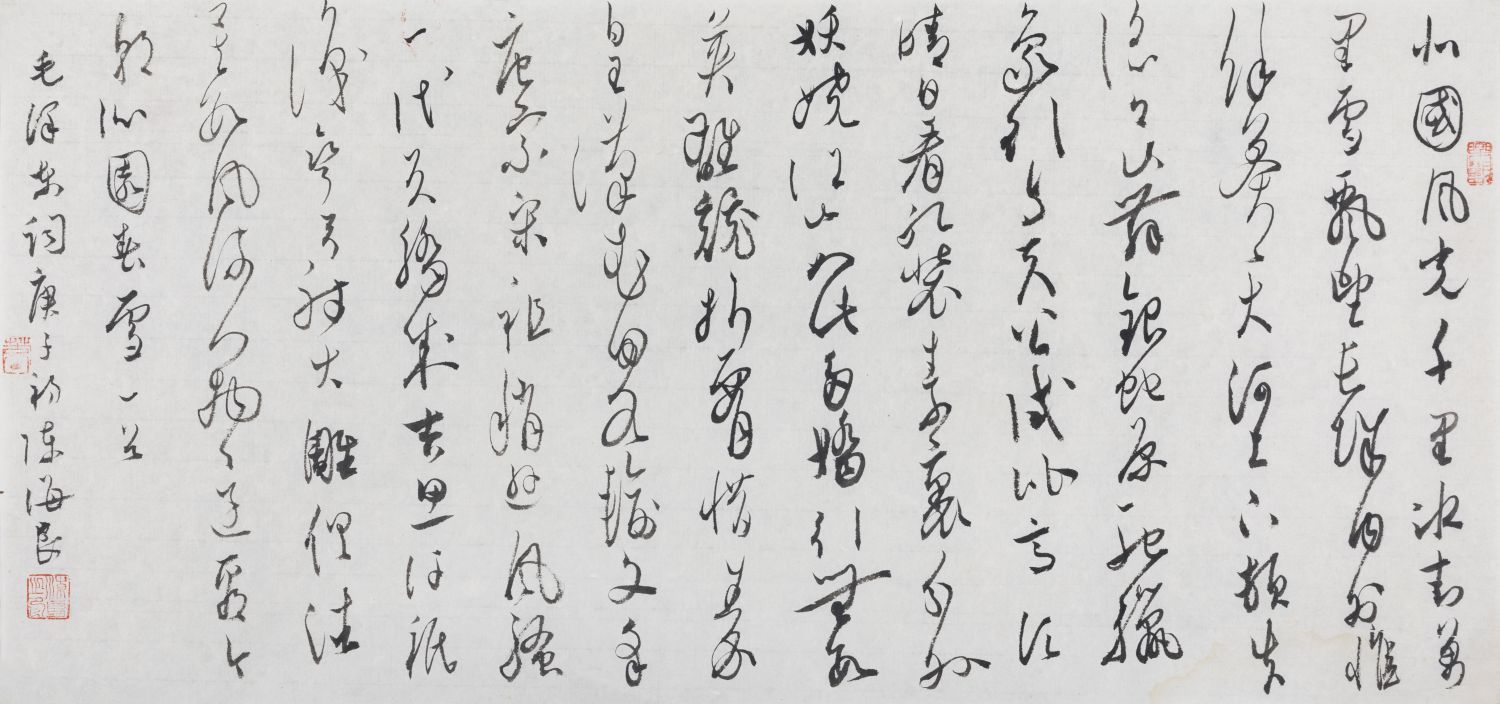 北國風光千里冰封萬
里雪飄望長城內外惟
餘莽莽大河上下頓失
滔滔山舞銀蛇原馳臘
象欲与天公試比高須
晴日看紅裝素裹分外
妖嬈江山如此多嬌引無數
英雄競折腰惜秦
皇漢武略輸文采
唐宗宋祖稍遜風騷
一代天驕成吉思汗祇
識彎弓射大雕俱往
矣數風流人物還看今
朝沁園春雪一首
毛澤東詞庚子初陳海良